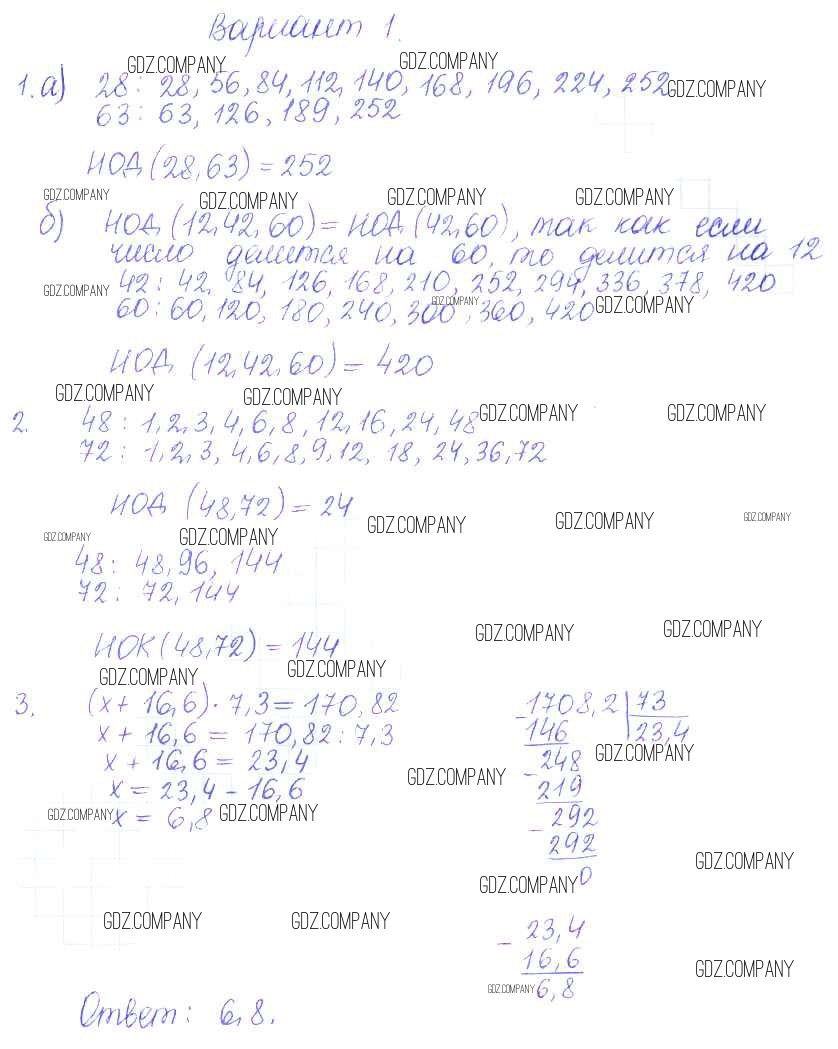 Вариант 1.
GDZ.COMPANY GDZ.COMPANY
1. а) 28: 28, 56, 84, 112, 140, 168, 196, 224, 252 GDZ.COMPANY
63: 63, 126, 189, 252
НОД (28,63) = 252
GDZ.COMPANY GDZ.COMPANY GDZ.COMPANY GDZ.COMPANY
б) НОД (12,42,60) = НОД (42,60), так как если
число делится на 60, то делится на 12
GDZ.COMPANY 42: 42, 84, 126, 168, 210, 252, 294, 336, 378, 420
60: 60, 120, 180, 240, 300, 360, 420 GDZ.COMPANY GDZ.COMPANY
НОД (12,42,60) = 420
GDZ.COMPANY GDZ.COMPANY
2. 48: 1, 2, 3, 4, 6, 8, 12, 16, 24, 48 GDZ.COMPANY GDZ.COMPANY
72: 1, 2, 3, 4, 6, 8, 9, 12, 18, 24, 36, 72
НОД (48,72) = 24
GDZ.COMPANY GDZ.COMPANY GDZ.COMPANY GDZ.COMPANY GDZ.COMPANY
48: 48, 96, 144
72: 72, 144
НОК (48,72) = 144
GDZ.COMPANY GDZ.COMPANY
GDZ.COMPANY GDZ.COMPANY
3. (x + 16,6) · 7,3 = 170,82
x + 16,6 = 170,82 : 7,3
x + 16,6 = 23,4
x = 23,4 - 16,6
GDZ.COMPANY x = 6,8 GDZ.COMPANY
- 1708,2 | 73
146 23,4
- 248 GDZ.COMPANY
GDZ.COMPANY 219
- 292
292
GDZ.COMPANY 0
GDZ.COMPANY
GDZ.COMPANY GDZ.COMPANY
- 23,4
16,6
GDZ.COMPANY 6,8
GDZ.COMPANY
Ответ: 6,8.